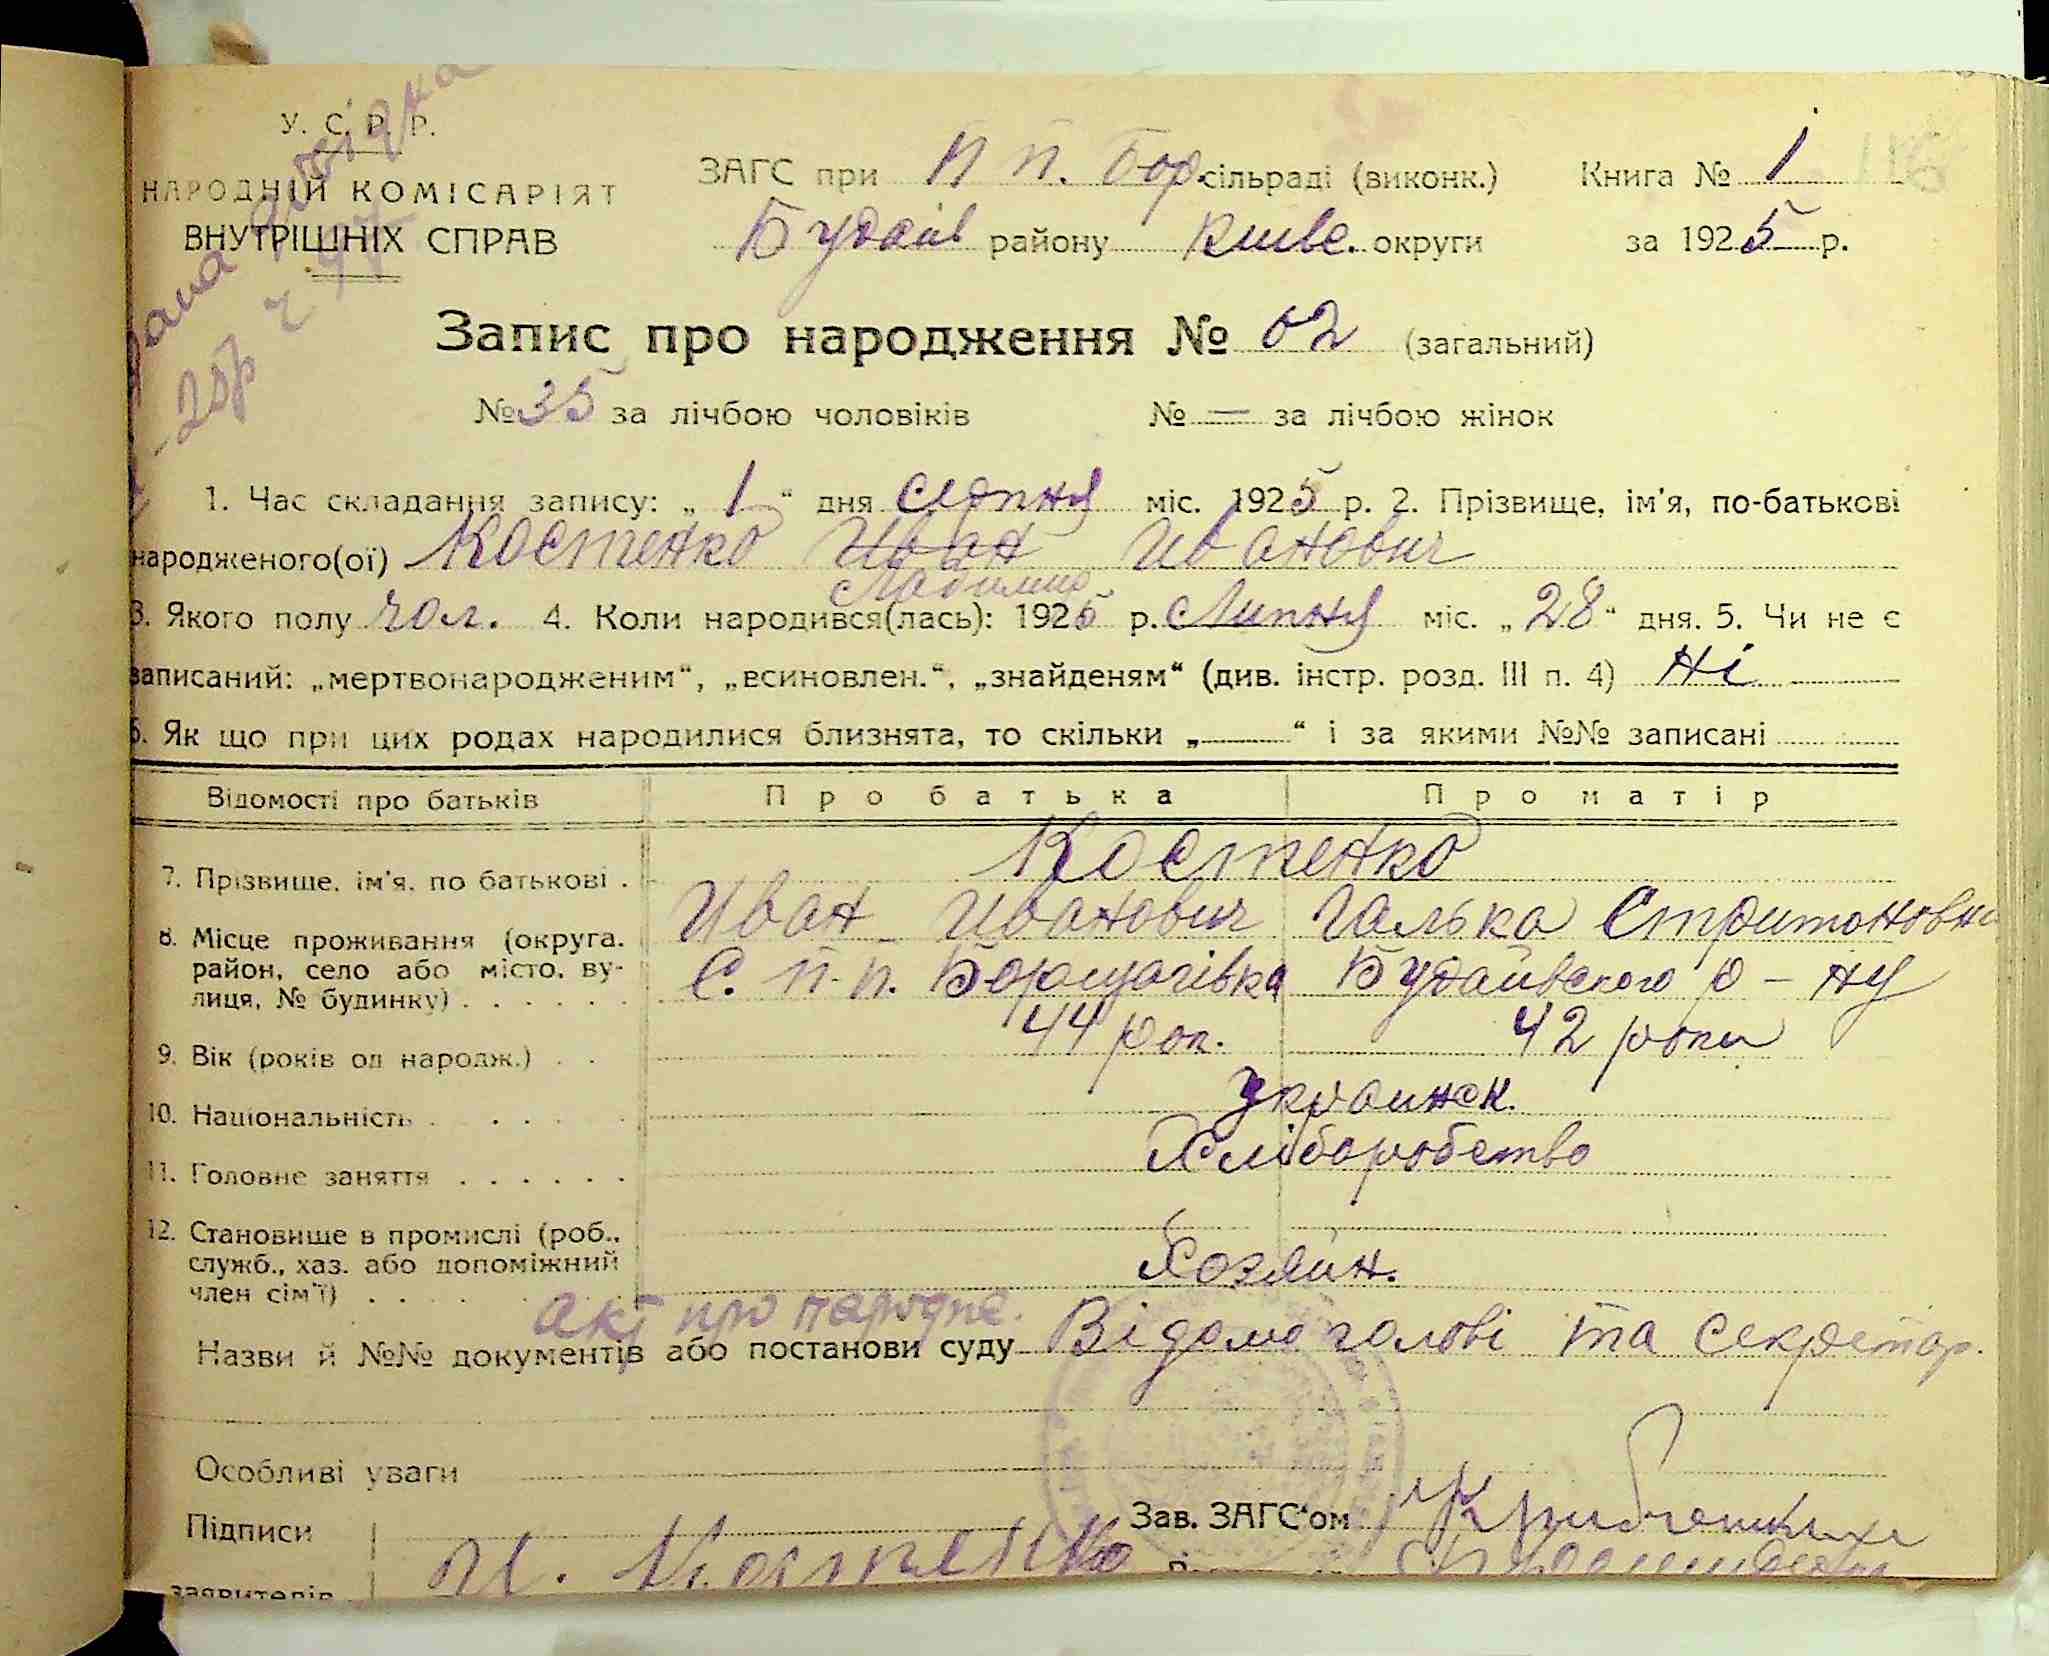 У. С. Р. Р.
НАРОДНІЙ КОМІСАРІЯТ
ВНУТРІШНІХ СПРАВ
ЗАГС при П п. Бор. сільраді (виконк.) Книга № 1 116
Будаїв району Київс. округи за 1925 р.
Запис про народження № 62 (загальний)
№ 35 за лічбою чоловіків № — за лічбою жінок
1. Час складання запису: „ 1 “ дня серпня міс. 1925 р. 2. Прізвище, ім'я, по-батькові
народженого(ої) Костенко Иван Иванович
3. Якого полу чол. 4. Коли народився(лась): 1925 р. Липня міс. „ 28 “ дня. 5. Чи не є
записаний: „мертвонародженим“, „всиновлен.“, „знайденям“ (див. інстр. розд. III п. 4) Ні
6. Як що при цих родах народилися близнята, то скільки „——“ і за якими №№ записані
Відомості про батьків Про батька Про матір
7. Прізвище, ім'я, по батькові . Костенко
Иван Иванович Галька
8. Місце проживання (округа, район, село або місто, ву-
лиця, № будинку) . . . . . . С. П-п. Борщагівка Будаївского р-ну
9. Вік (років од народж.) . . 44 рок. 42 роки
10. Національність . . . . . украинск.
11. Головне заняття . . . . . . Хліборобство
12. Становище в промислі (роб.,
служб., хаз. або допоміжний
член сім'ї) . . . . Хозяин.
акт про народж.
Назви й №№ документів або постанови суду Відомо голові та секретар.
Особливі уваги
Підписи
заявителів И. Костенко
Зав. ЗАГС'ом